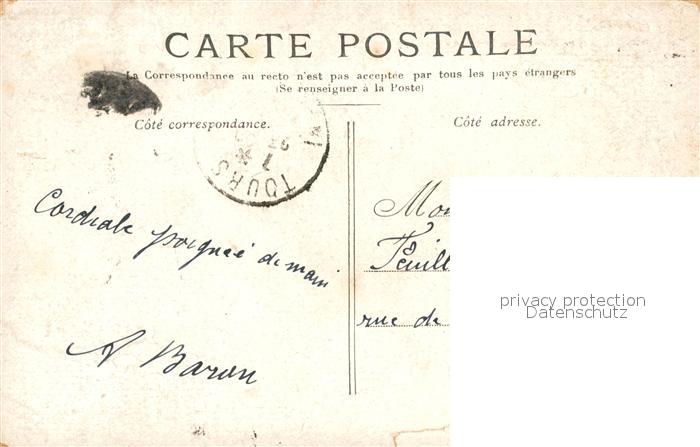 CARTE POSTALE
La Correspondance au recto n'est pas acceptée par tous les pays étrangers
(Se renseigner à la Poste)
Côté correspondance.
Côté adresse.
TOURS
Cordiale poignée de main
A Baron
Mon
Feuill
rue de
privacy protection
Datenschutz